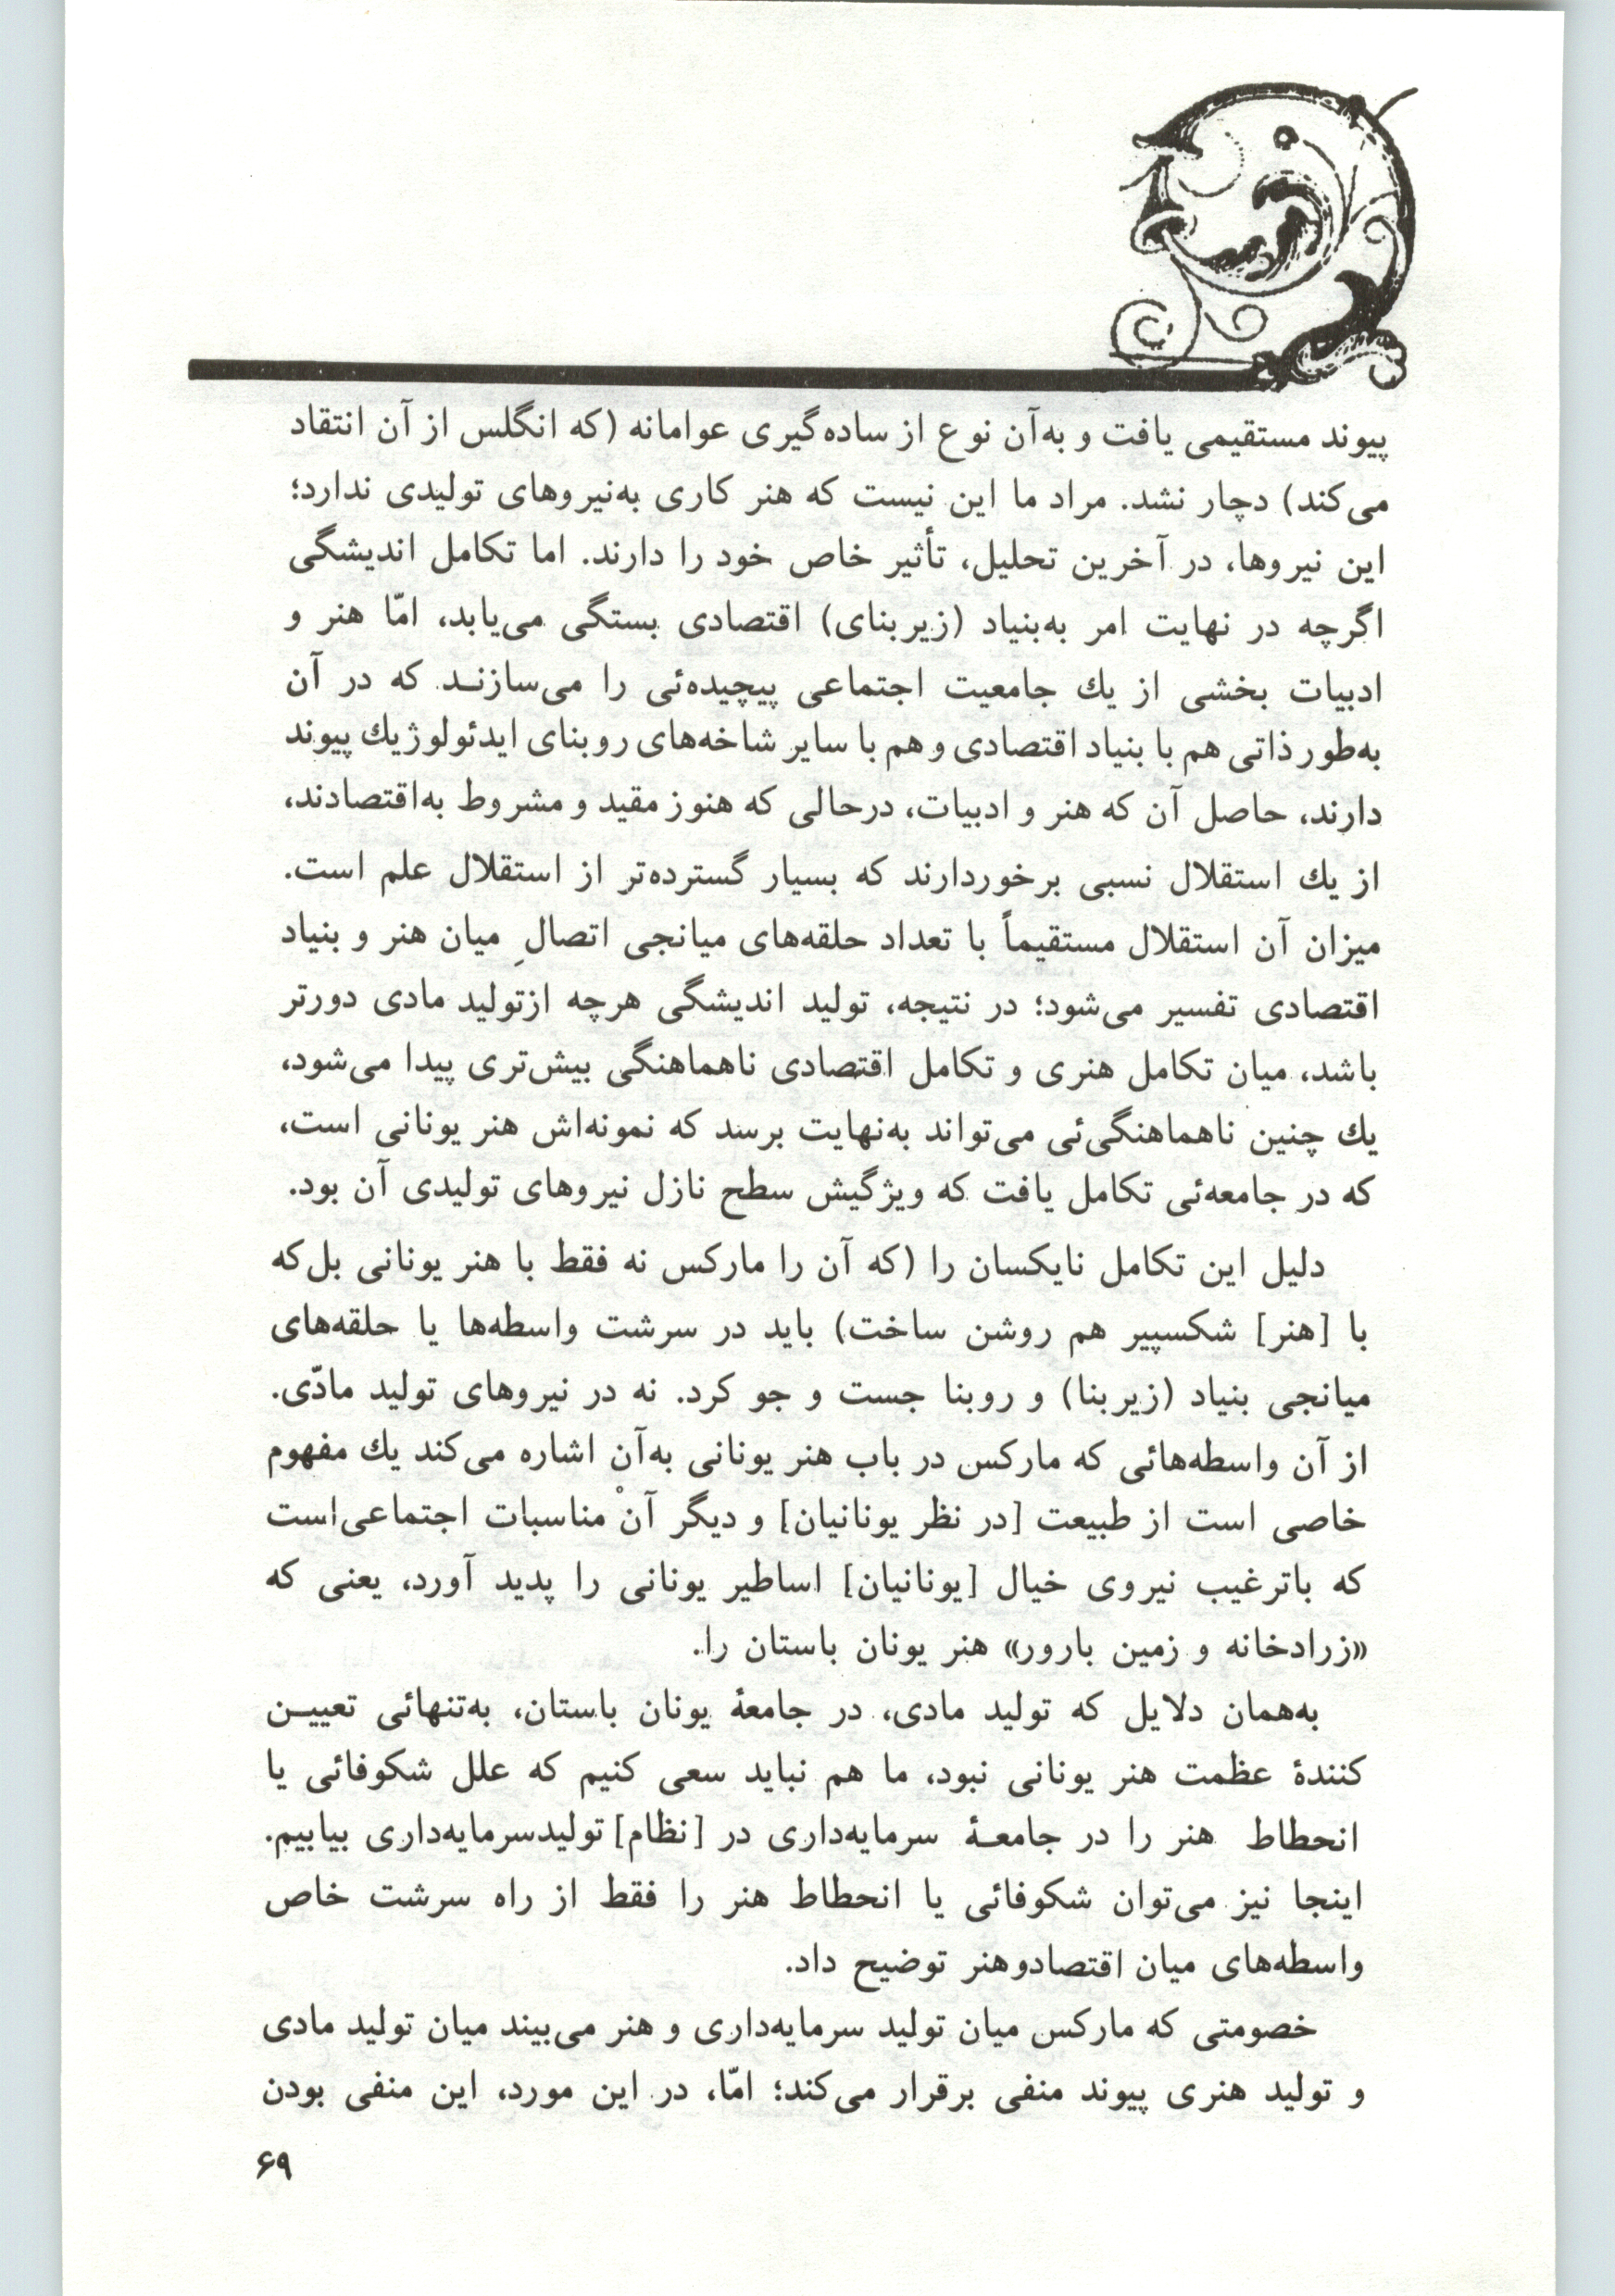 پیوند مستقیمی یافت و به‌آن نوع از ساده‌گیری عوامانه (که انگلس از آن انتقاد
می‌کند) دچار نشد. مراد ما این نیست که هنر کاری به‌نیروهای تولیدی ندارد؛
این نیروها، در آخرین تحلیل، تأثیر خاص خود را دارند. اما تکامل اندیشگی
اگرچه در نهایت امر به‌بنیاد (زیربنای) اقتصادی بستگی می‌یابد، امّا هنر و
ادبیات بخشی از یك جامعیت اجتماعی پیچیده‌ئی را می‌سازنـد که در آن
به‌طور ذاتی هم با بنیاد اقتصادی و هم با سایر شاخه‌های روبنای ایدئولوژیك پیوند
دارند، حاصل آن که هنر و ادبیات، درحالی که هنوز مقید و مشروط به‌اقتصادند،
از یك استقلال نسبی برخوردارند که بسیار گسترده‌تر از استقلال علم است.
میزان آن استقلال مستقیماً با تعداد حلقه‌های میانجی اتصالِ میان هنر و بنیاد
اقتصادی تفسیر می‌شود؛ در نتیجه، تولید اندیشگی هرچه ازتولید مادی دورتر
باشد، میان تکامل هنری و تکامل اقتصادی ناهماهنگی بیش‌تری پیدا می‌شود،
یك چنین ناهماهنگی‌ئی می‌تواند به‌نهایت برسد که نمونه‌اش هنر یونانی است،
که در جامعه‌ئی تکامل یافت که ویژگیش سطح نازل نیروهای تولیدی آن بود.
دلیل این تکامل نایکسان را (که آن را مارکس نه فقط با هنر یونانی بل‌که
با [هنر] شکسپیر هم روشن ساخت) باید در سرشت واسطه‌ها یا حلقه‌های
میانجی بنیاد (زیربنا) و روبنا جست و جو کرد. نه در نیروهای تولید مادّی.
از آن واسطه‌هائی که مارکس در باب هنر یونانی به‌آن اشاره می‌کند یك مفهوم
خاصی است از طبیعت [در نظر یونانیان] و دیگر آنْ مناسبات اجتماعی‌است
که باترغیب نیروی خیال [یونانیان] اساطیر یونانی را پدید آورد، یعنی که
«زرادخانه و زمین بارور» هنر یونان باستان را.
به‌همان دلایل که تولید مادی، در جامعهٔ یونان باستان، به‌تنهائی تعییـن
کنندهٔ عظمت هنر یونانی نبود، ما هم نباید سعی کنیم که علل شکوفائی یا
انحطاط هنر را در جامعـهٔ سرمایه‌داری در [نظام] تولیدسرمایه‌داری بیابیم.
اینجا نیز می‌توان شکوفائی یا انحطاط هنر را فقط از راه سرشت خاص
واسطه‌های میان اقتصادوهنر توضیح داد.
خصومتی که مارکس میان تولید سرمایه‌داری و هنر می‌بیند میان تولید مادی
و تولید هنری پیوند منفی برقرار می‌کند؛ امّا، در این مورد، این منفی بودن
۶۹